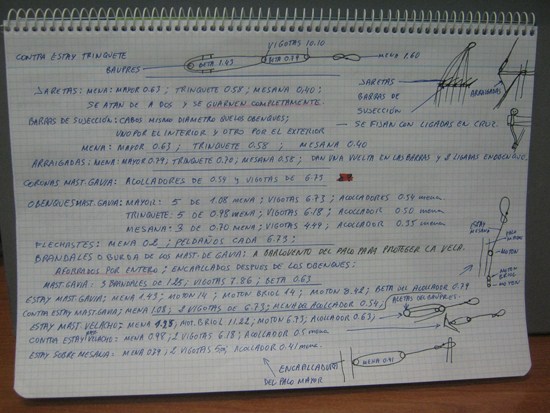 VIGOTAS 10.10
CONTRA ESTAY TRINQUETE
BETA 1.43
BETA 0.79
MENA 1.60
BAUPRES
JARETAS: MENA: MAYOR 0.63; TRINQUETE 0.58; MESANA 0.40;
SE ATAN DE A DOS Y SE GUARNEN COMPLETAMENTE.
JARETAS
BARRAS DE SUSECCIÓN: CABOS MISMO DIÁMETRO QUE LOS OBENQUES;
BARRAS DE SUSECCIÓN
ARRAIGADAS
UNO POR EL INTERIOR Y OTRO POR EL EXTERIOR
SE FIJAN CON LIGADAS EN CRUZ.
MENA: MAYOR 0.63; TRINQUETE 0.58; MESANA 0.40
ARRAIGADAS: MENA: MAYOR 0.79, TRINQUETE 0.70; MESANA 0.58; DAN UNA VUELTA EN LAS BARRAS Y 2 LIGADAS
CORONAS MAST. GAVIA: ACOLLADORES DE 0.54 Y VIGOTAS DE 6.73
OBENQUES MAST. GAVIA: MAYOR: 5 DE 1.08 MENA; VIGOTAS 6.73; ACOLLADORES 0.54 MENA
TRINQUETE: 5 DE 0.98 MENA; VIGOTAS 6.18; ACOLLADOR 0.50 MENA
MESANA: 3 DE 0.70 MENA; VIGOTAS 4.49; ACOLLADOR 0.35 MENA
FLECHASTES: MENA 0.2; PELDAÑOS CADA 6.73;
BRANDALES O BURDA DE LOS MAST. DE GAVIA: A BARLOVENTO DEL PALO PARA PROTEGER LA VELA.
AFORRADOS POR ENTERO; ENCAPILLADOS DESPUES DE LOS OBENQUES:
MAST. GAVIA: 3 BRANDALES DE 1.25; VIGOTAS 7.86; BETA 0.63
ESTAY MAST. GAVIA: MENA 1.43; MOTON 14; MOTON BRIOL 14; MOTON 8.42; BETA DEL ACOLLADOR 0.79
CONTRA ESTAY MAST. GAVIA; MENA 1.08; 2 VIGOTAS DE 6.73; MENA DE ACOLLADOR 0.54,
ESTAY MAST. VELACHO: MENA 1.25; MOT. BRIOL 11.22; MOTON 6.73; ACOLLADOR 0.63
CONTRA ESTAY VELACHO: MENA 0.98; 2 VIGOTAS 6.18; ACOLLADOR 0.5 MENA
ESTAY SOBRE MESANA: MENA 0.79; 2 VIGOTAS 5; ACOLLADOR 0.41 MENA
ESTAY MAYOR
PALO MAYOR
MOTON
MOTON BRIOL
MOTON
ALETAS DEL BAUPRES
MENA 0.41
ENCAPILLADURA DEL PALO MAYOR